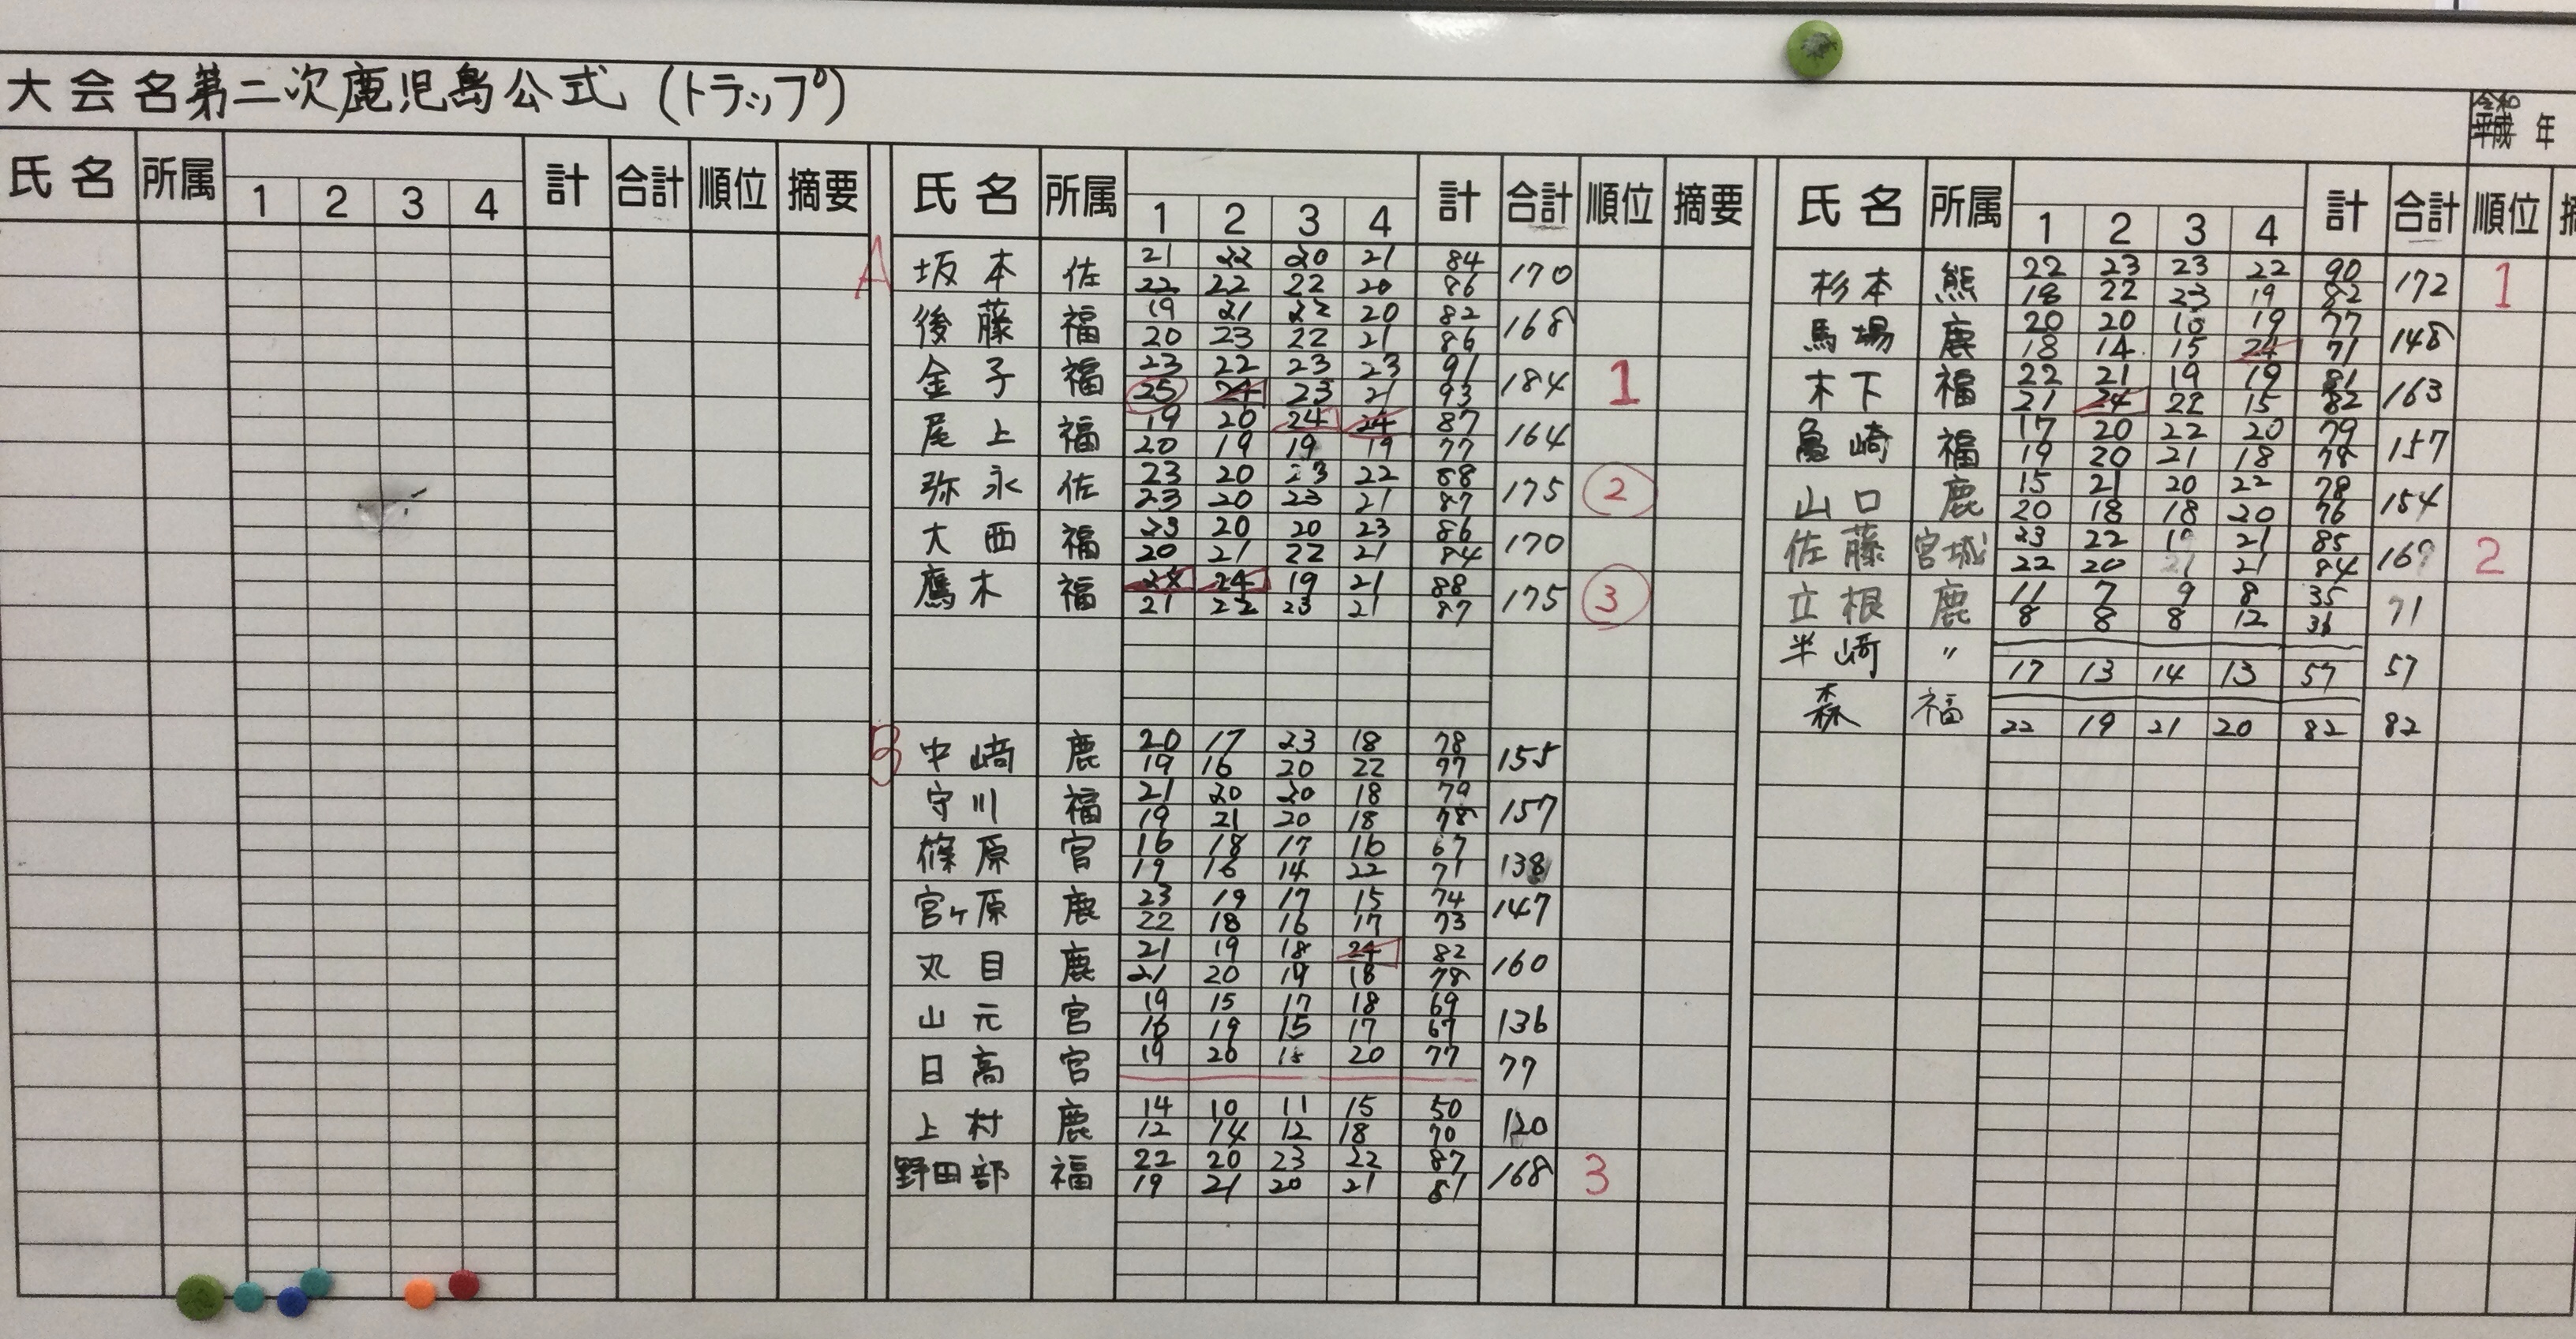 大会名 第二次鹿児島公式 (トラップ)
令和
平成 年
氏名 所属 1 2 3 4 計 合計 順位 摘要
氏名 所属 1 2 3 4 計 合計 順位 摘要
A
坂本 佐 21 22 20 21 84 170
22 22 22 20 86
後藤 福 19 21 22 20 82 168
20 23 22 21 86
金子 福 23 22 23 23 91 184 1
25 24 23 21 93
尾上 福 19 20 24 24 87 164
20 19 19 19 77
弥永 佐 23 20 23 22 88 175 2
23 20 23 21 87
大西 福 23 20 20 23 86 170
20 21 22 21 84
鷹木 福 24 24 19 21 88 175 3
21 22 23 21 87
B
中崎 鹿 20 17 23 18 78 155
19 16 20 22 77
守川 福 21 20 20 18 79 157
19 21 20 18 78
篠原 宮 16 18 17 16 67 138
19 16 14 22 71
宮ヶ原 鹿 23 19 17 15 74 147
22 18 16 17 73
丸目 鹿 21 19 18 24 82 160
21 20 19 18 78
山元 宮 19 15 17 18 69 136
16 19 15 17 67
日高 宮 19 20 18 20 77 77
上村 鹿 14 10 11 15 50 120
12 14 12 18 70
野田部 福 22 20 23 22 87 168 3
19 21 20 21 81
氏名 所属 1 2 3 4 計 合計 順位
杉本 熊 22 23 23 22 90 172 1
18 22 23 19 82
馬場 鹿 20 20 18 19 77 148
18 14 15 24 71
木下 福 22 21 19 19 81 163
21 24 22 15 82
亀崎 福 17 20 22 20 79 157
19 20 21 18 78
山口 鹿 15 21 20 22 78 154
20 18 18 20 76
佐藤 宮城 23 22 19 21 85 169 2
22 20 21 21 84
立根 鹿 11 7 9 8 35 71
8 8 8 12 36
半崎 〃
17 13 14 13 57 57
森 福
22 19 21 20 82 82